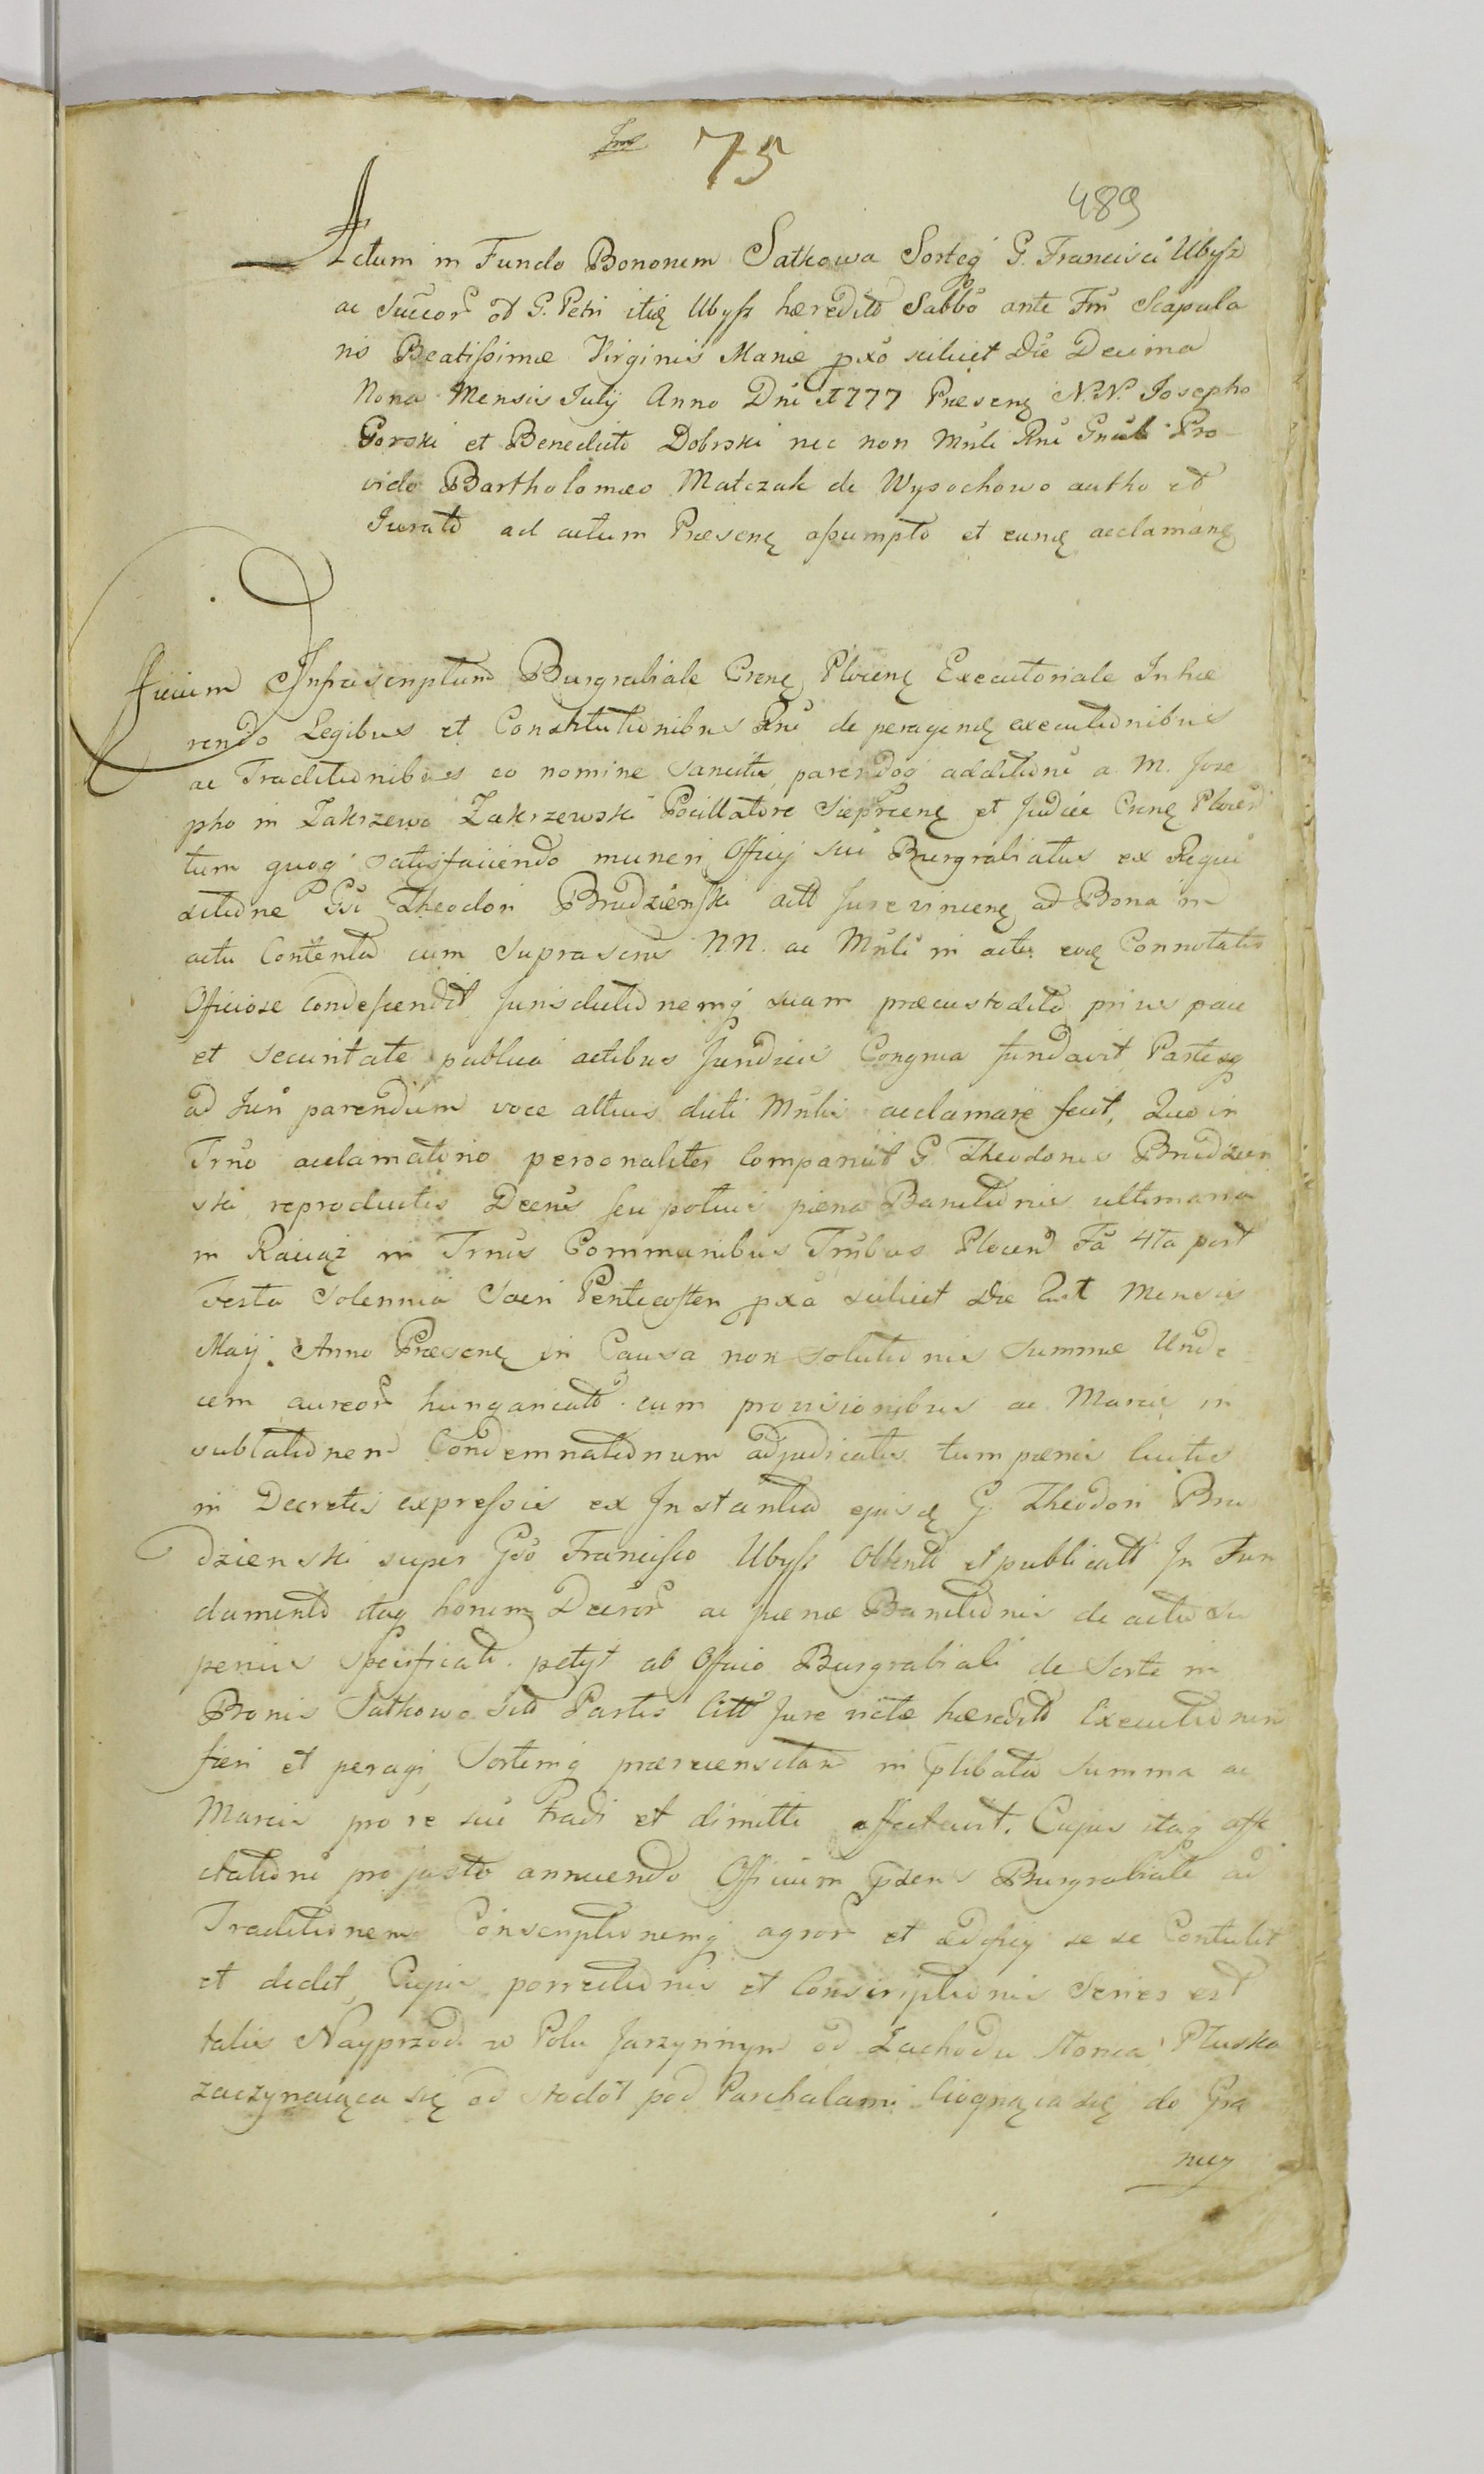 75
489
Actum in Fundo Bonorum Satkowa Sorteq G. Francisci Ubysz
ac Succor et G. Petri itię Ubysz hæredit Sabbo ante Fm Scapula
ris Beatissimæ Virginis Mariæ pxo scilicet Die Decima
Nona Mensis Julij Anno Dni 1777 Præsenę N.N. Josepho
Gorski et Benedicto Dobrski nec non Mnli Rni Gnali Pro-
vido Bartholomæo Matczak de Wysochowo autho et
Jurato ad actum Præsenę assumpto et eumę acclamanę
fficium Infrascriptum Burgrabiale Crenę Plocenę Executoriale Inhæ
rendo Legibus et Constitutionibus Rni de peragendę executionibus
ac Traditionibus eo nomine sancitis parendoq additioni a M. Jose
pho in Zakrzewo Zakrzewski Pocillatore Sieprcenę et Judice Crenę Plocen
tum quoq satisfaciendo muneri Officij sui Burgrabiatus ex Requi
sitione Gsi Theodori Brudzienski actt Jure vincenę ad Bona in
actu Contenta cum suprascris N.N. ac Mnli in actu eoę Connotatis
Officiose condescendit Jurisdictionemq suam præcustodita prius pace
et securitate publica actibus Jundicis Congrua fundavit Partesq
ad Juri parendum voce altius dicti Mnlis acclamare fecit, Quo in
Trno acclamationo personaliter Comparuit G. Theodorus Brudzien
ski reproductis Decris seu potius pæna Banitionis ultimaria
in Raciąż in Trnis Communibus Trnbus Plocen Fa 4ta post
Festa Solennia Sacri Pentecosten pxa scilicet Die 21 Mensis
Maij Anno Præsenę in Causa non solutionis Summæ Unde
cem aureor hungaricatt cum provisionibus ac Marcis in
sublationem Condemnationum adjudicatis tum pænis luitis
in Decretis expressis ex Instantia ejusdę G. Theodori Bru
dzienski super Gso Francisco Ubysz Obtent et publicatt In Fun
damento itaq horumę Decror ac pænæ Banitionis de actu Su
perius Specificati petijt ab Officio Burgrabiali de Sorte in
Bonis Satkowo sita Partis Citt Jure victæ hæredit Executionem
fieri et peragi, Sortemq præecensitam in plibata Summa ac
Marcis pro re sui tradi et dimitti affectavit. Cujus itaq affe
ctationi pro justo annuendo Officium psens Burgrabiale ad
Traditionem Conscriptionemq agror et ædificij se se Contulit
et dedit, Cujus porrectionis et Conscriptionis Series est
talis Nayprzod w Polu Jarzynnym od Zachodu słonca Płuska
zaczynaiąca się od stodoł pod Paschalami Ciągnąca się do Gra
nicy